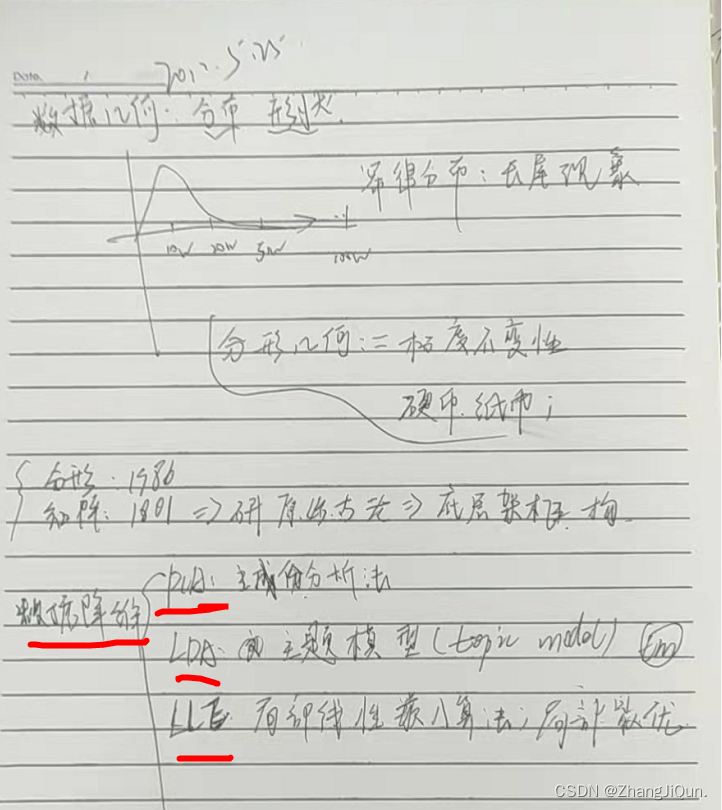 Date. /
数据几何: 分布 形状
幂律分布: 长尾现象
10W 20W 50W 100W
分形几何: 标度不变性
硬币 纸币;
分形: 1986
矩阵: 1801 => 研 原始方法 => 底层架框 构
数据降维
PCA: 主成份分析法
LDA: 主题模型 (topic model) Em
LLE: 局部线性嵌入算法; 局部最优
CSDN @ZhangJiQun.